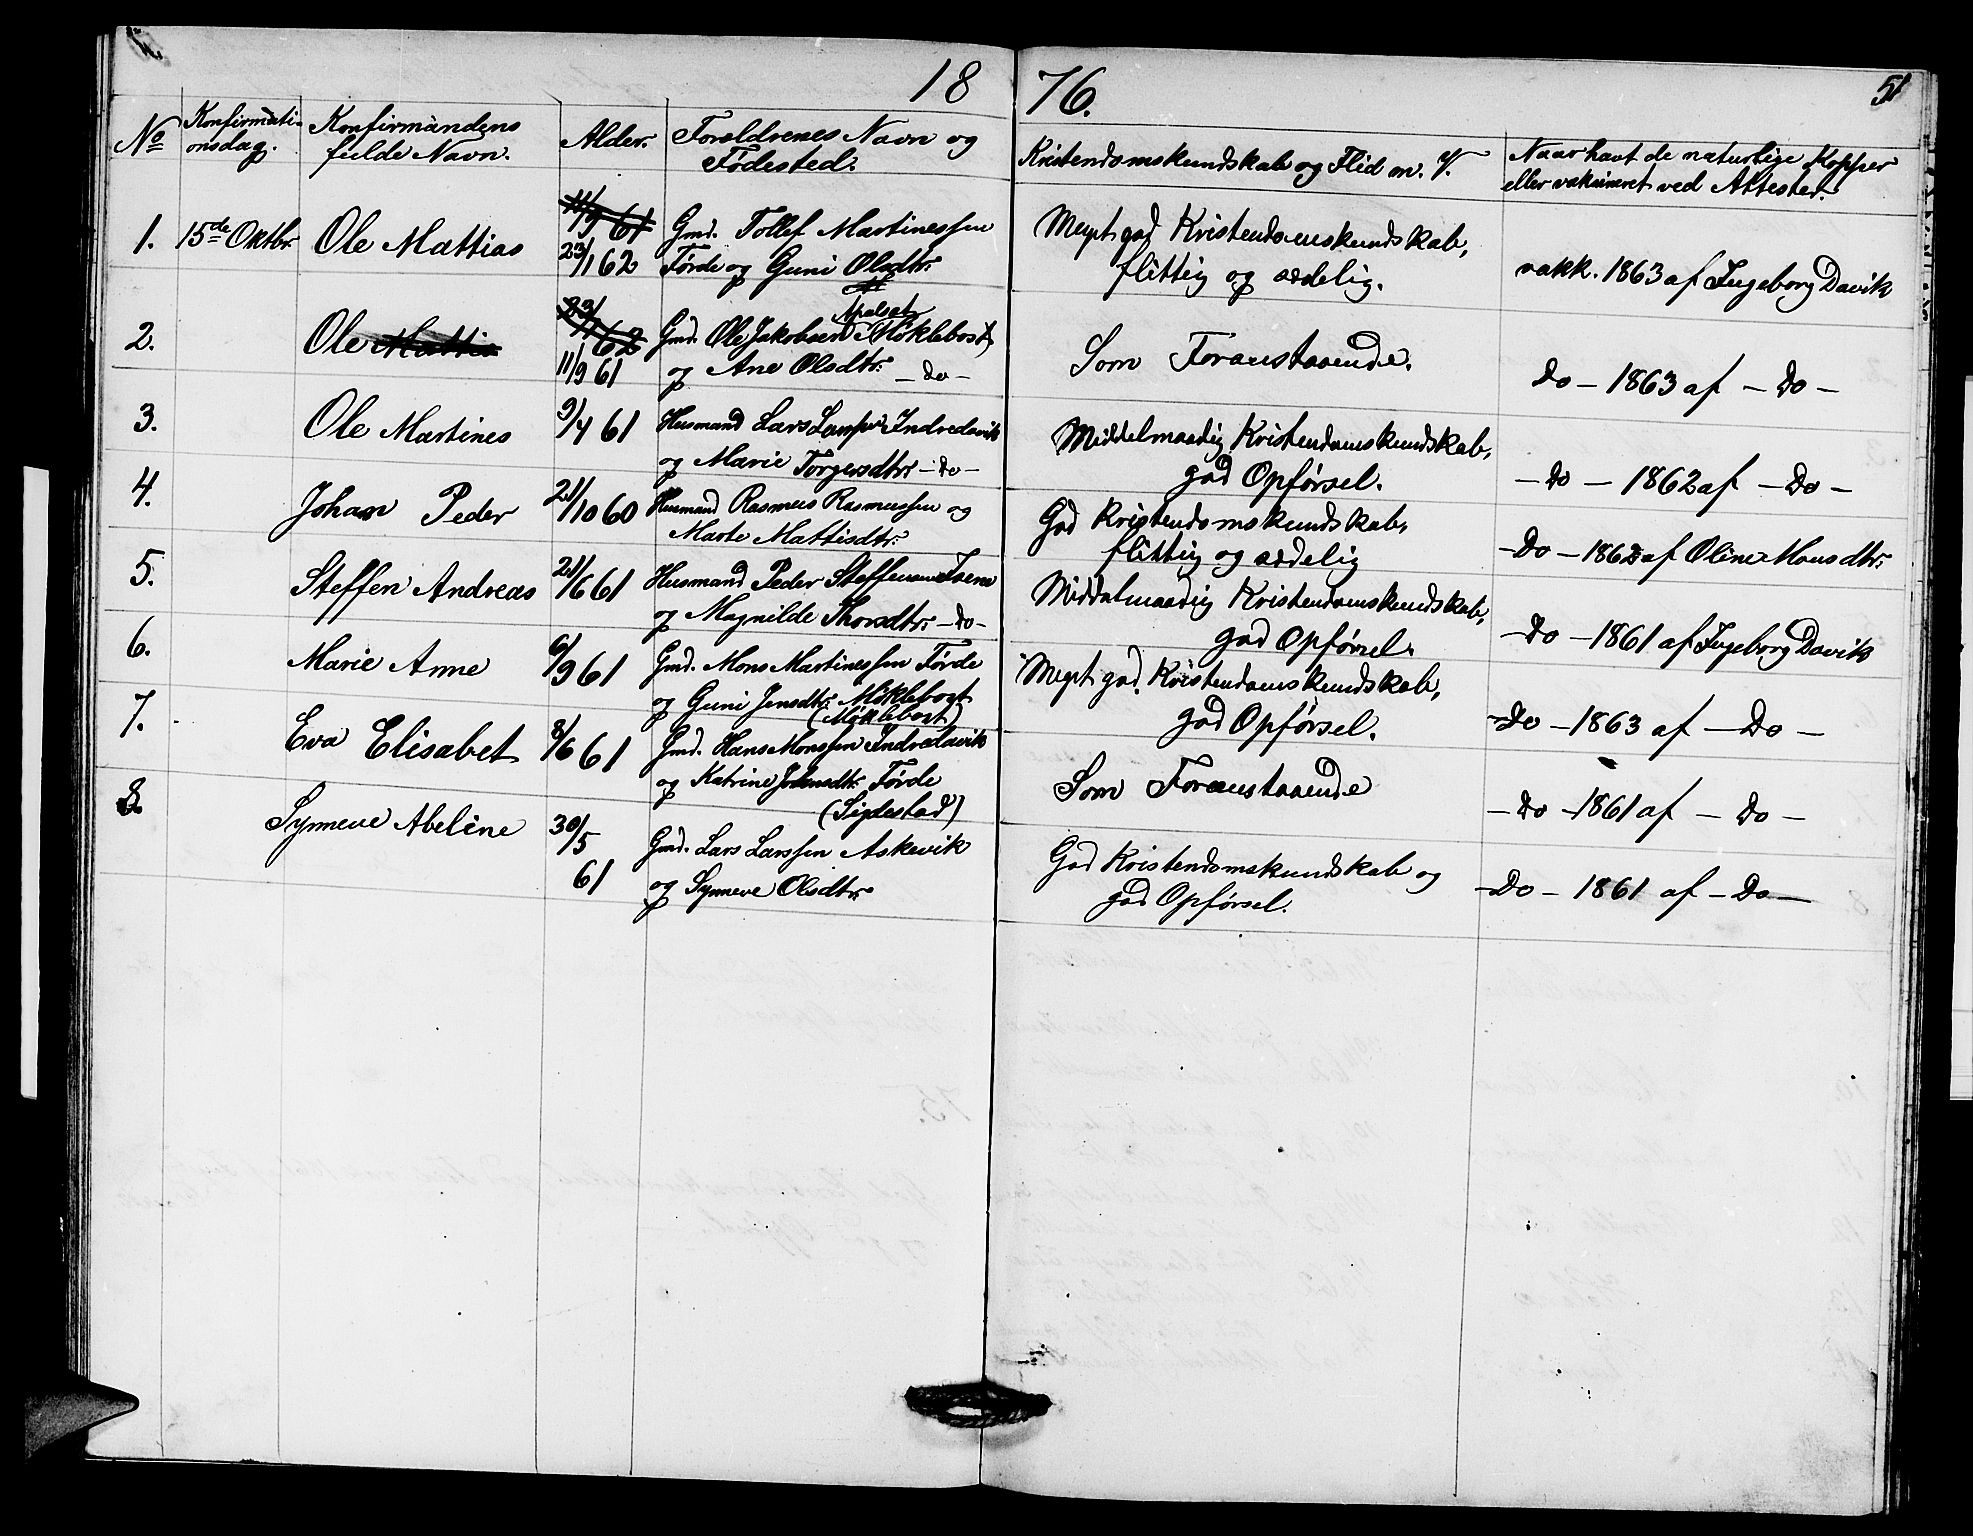 18 76. 51
No Konfirmati- Konfirmandens Alder. Foreldrenes Navn og Kristendomskundskab og Flid m. V. Naar havt de naturlige Kopper
onsdag. fulde Navn. Fødested. eller vaksineret ved Attester.
1. 15de Oktbr. Ole Mattias 11/9 61 Gmd. Tollef Martinessen Meget god Kristendomskundskab,
23/1 62 Førde og Guni Olsdtr. flittig og sædelig. vakk. 1863 af Ingeborg Davik
Apalset
2. Ole Mattis 23/1 62 Gmd. Ole Jakobsen (Møklebost) Som Foranstaaende.
11/9 61 og Ane Olsdtr. - do - do - 1863 af - Do -
3. Ole Martines 9/4 61 Husmand Lars Indredavik Middelmaadig Kristendomskundskab,
og Marie Torgersdtr - do - god Opførsel. - do - 1862 af - Do -
4. Johan Peder 21/10 60 Husmand Rasmus Rasmussen og God Kristendomskundskab,
Marte Mattisdtr. flittig og sædelig - Do - 1862 af Oline Monsdtr.
5. Steffen Andreas 21/6 61 Husmand Peder Steffensen Middelmaadig Kristendomskundskab,
og Magnilde Thorsdtr. - do - god Opførsel. - Do - 1861 af Ingeborg Davik
6. Marie Anne 6/9 61 Gmd. Mons Martinessen Førde Meget god Kristendomskundskab,
og Guni Jensdtr. Møklebost god Opførsel. - Do - 1863 af - Do -
(Møklebost)
7. Eva Elisabet 8/6 61 Gmd. Hans Monssen Indredavik Som Foranstaaende
og Katrine Johansdtr. Førde - Do - 1861 af - Do -
(Sigdestad)
8. Synneve Abeline 30/5 Gmd. Lars Larssen Askevik God Kristendomskundskab og
61 og Synneve Olsdtr. god Opførsel. - Do - 1861 af - Do -